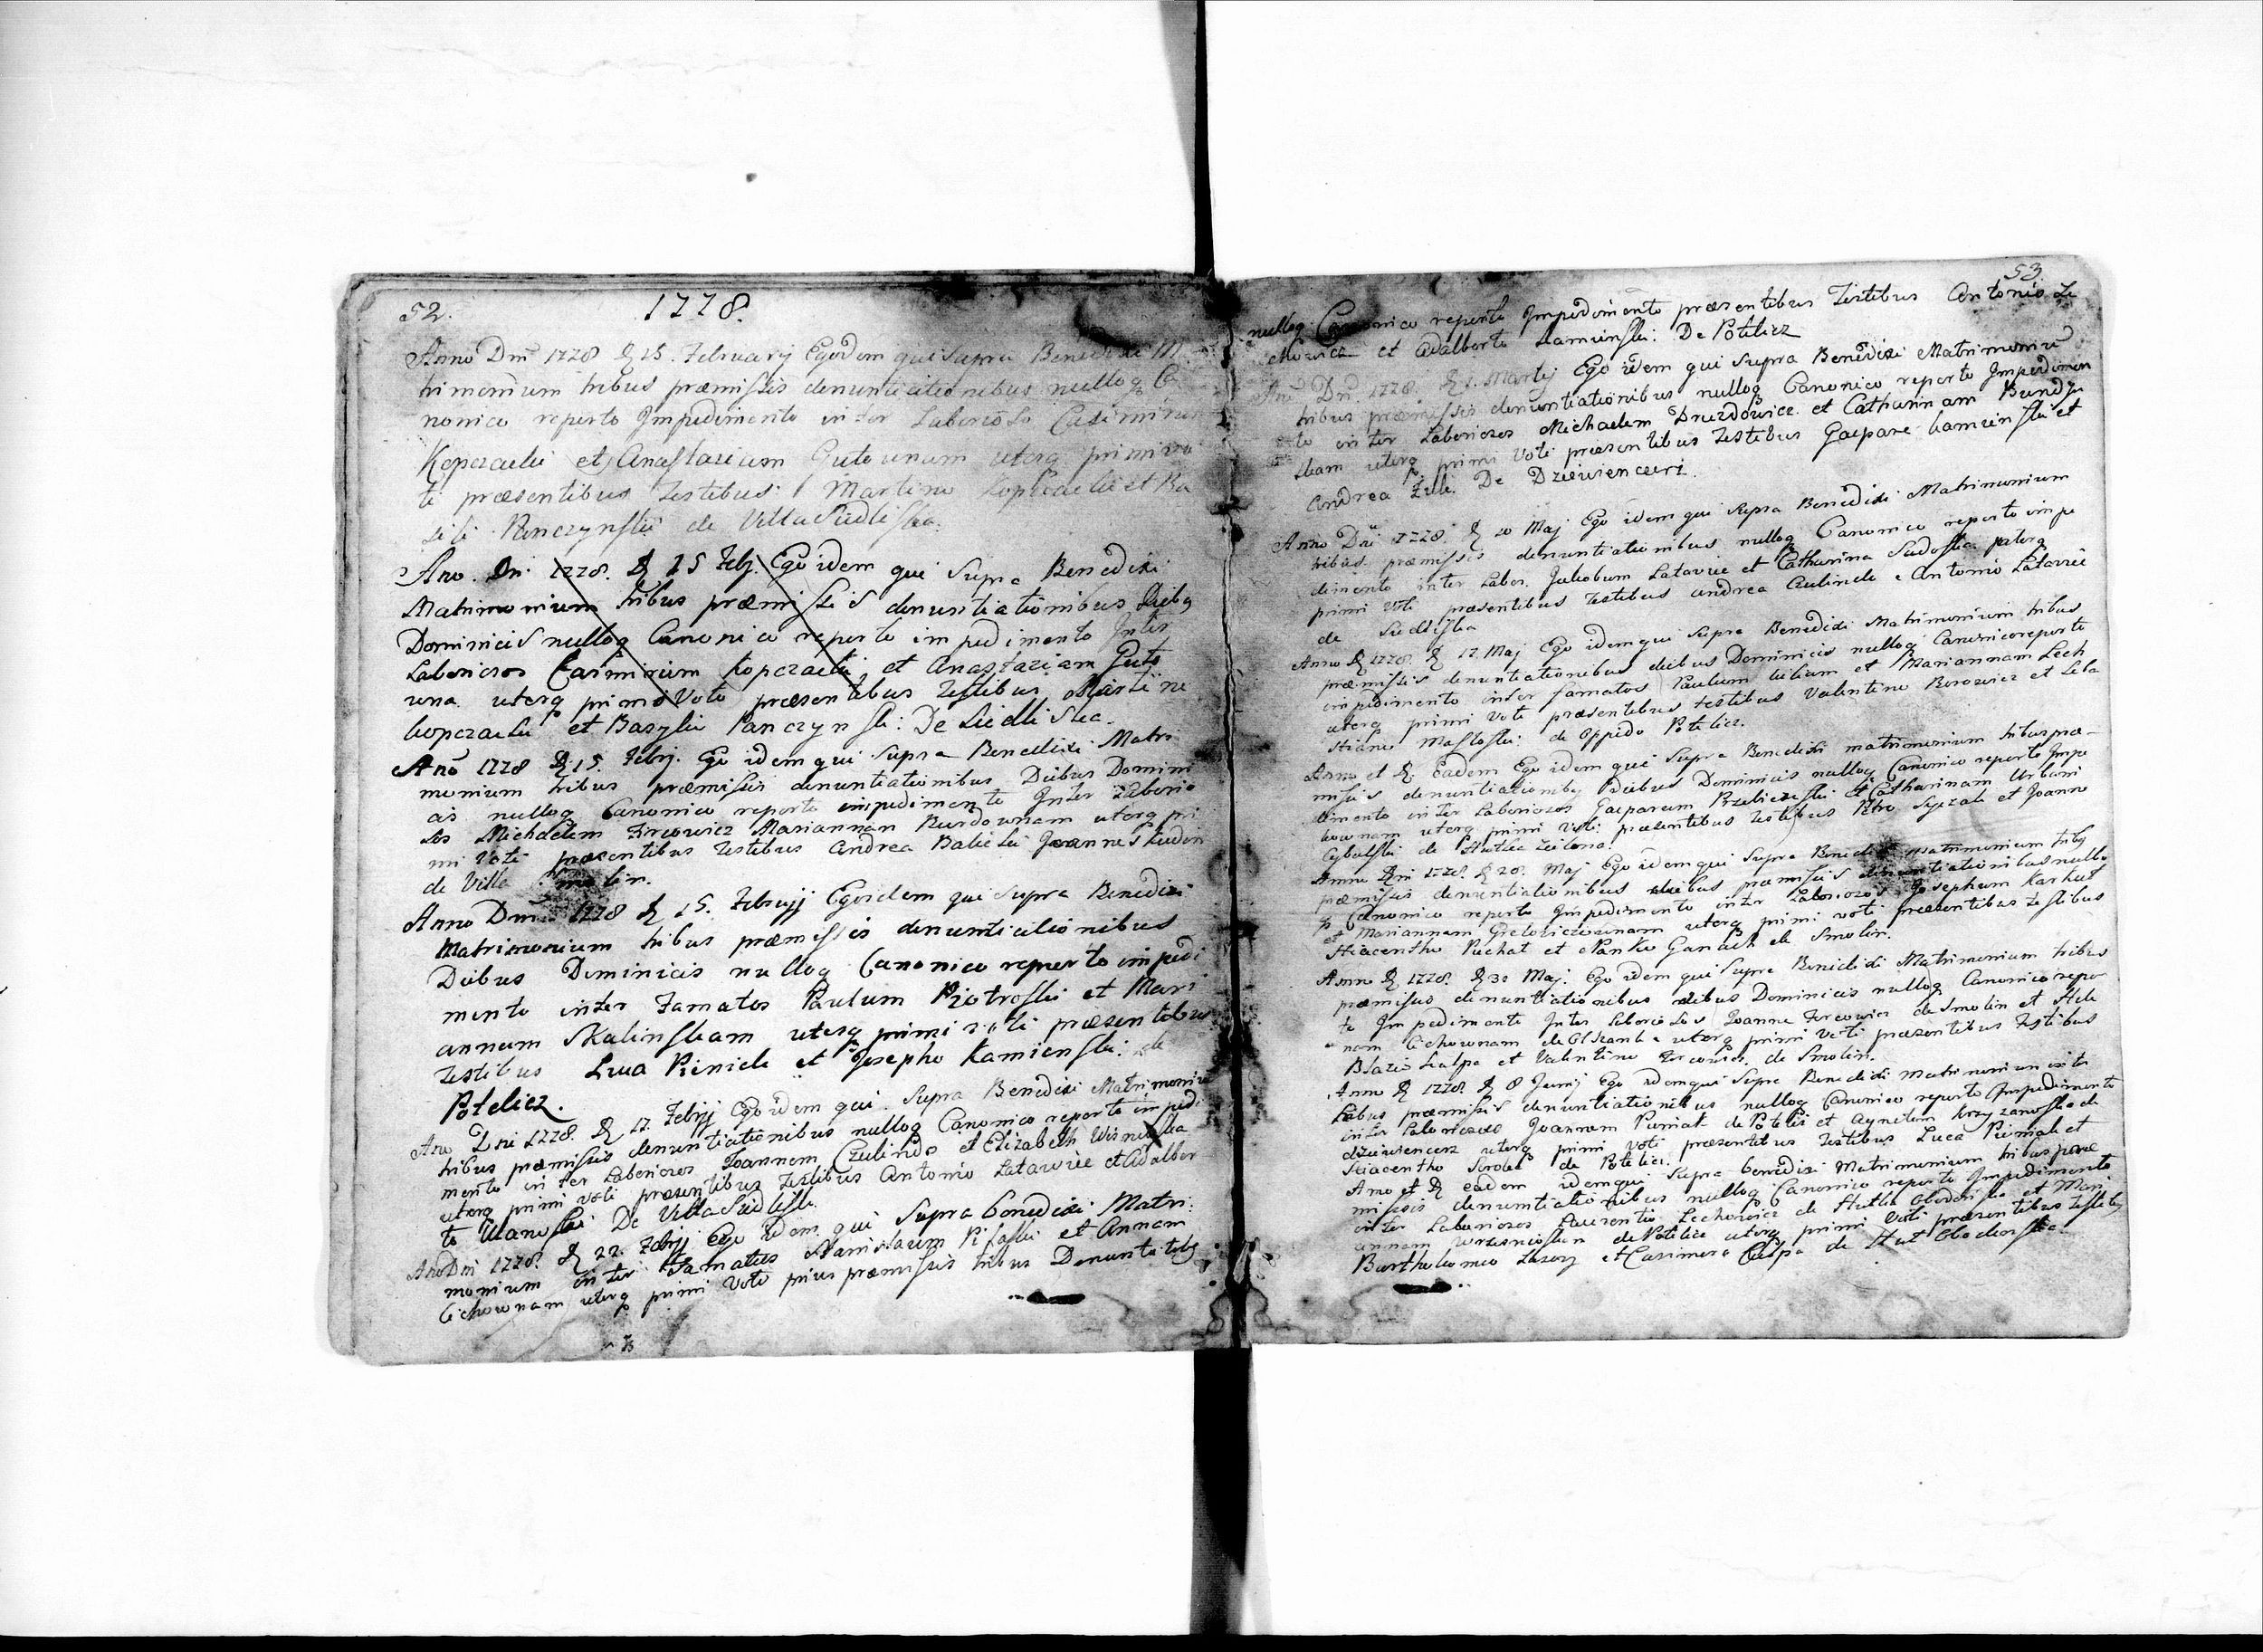 52.
1778.
Anno Dni 1778 D 15. February Egoidem qui Supra Benedixi M
trimonium tribus præmissis denuntiationibus nulloq Ca
nonico reperto Impedimento inter Laborioso Casimirum
Kopczacki et Anastasiam Gutownam uterq primi vo
ti præsentibus Testibus Martino Kopczacki et Ba
sili Panczynski de Villa Siedliska
Ano Dni 1778. D 15 Febr. Ego idem qui Supra Benedixi
Matrimonium tribus præmissis denuntiationibus Diebq
Dominicis nulloq Canonico reperto impedimento Inter
Laboriosos Casimirum Kopczacki, et Anastaziam Guto
wna uterq primi Voti præsentibus Testibus Martine
kopczacki et Basylii Panczynski: De Siedliska.
Ano 1778 D 15. Febrj. Ego idem qui Supra Benedixi Matri
monium tribus præmissis denuntiationibus Diebus Domini
cis nulloq Canonico reperto impedimento Inter Laborio
sos Michaelem Fircowicz Mariannam Burdownam uterq pri
mi Voti præsentibus Testibus Andrea Babicki Joannes
de Villa Smolin.
Anno Dni 1778 D 15. Februjj Egoidem qui Supra Benedixi
Matrimonium tribus præmissis denuntiationibus
Diebus Dominicis nulloq Canonico reperto impedi
mento inter Famatos Paulum Piotroski et Mari
annam Skalinskam uterq primi voti præsentibus
Testibus Luca Piniek et Josepho Kamienski: de
Potelicz.
Ano Dni 1778. D 17. Febrjj Ego idem qui Supra Benedixi Matrimoniu
tribus præmissis denuntiationibus nulloq Canonico reperto impedi
mento inter Laboriosos Joannem Czulindo et Elizabeth Wisniska
uterq primi voti præsentibus Testibus Antonio Latawiec et Adalber
to Ulanoski De Villa Siedliska
Ano Dni 1778. D 22. Febrjj Ego idem qui Supra benedixi Matri:
monium inter Famatos Stanislaum Pifaski et Annam
Cichownam uterq primi Voti prius præmissis tribus Denuntiatbq
53
nulloq Canonico reperto Impedimento præsentibus Testibus Antonio Le
chowicz et Adalberto Kamienski: De Potelicz
Ano Dni 1778. D 1. Martij Ego idem qui Supra Benedixi Matrimoniu
tribus præmissis denuntiationibus nulloq Canonico reperto Impedimen
to inter Laboriosos Michaelem Druzdowicz et Catharinam Bundys
skam uterq primi Voti præsentibus Testibus Gaspare kamienski et
Andrea Zuk. De Dziewiencerz.
Anno Dni 1778. D 10 Maj Ego idem qui Supra Benedixi Matrimonium
tribus præmissis denuntiationibus nulloq Canonico reperto impe
dimento inter Labor. Jakobum Latawie et Catharina Sudoska uterq
primi Voti præsentibus Testibus Andrea Czulindo e Antonio Latawie
de Siedliska
Anno D 1778. D 17. Maj Ego idem qui Supra Benedixi Matrimonium tribus
præmissis denuntiationibus diebus Dominicis nulloq Canonico reperto
impedimento inter famatos Paulum et Mariannam Lech
uterq primi Voti præsentibus testibus Valentino Borowicz et Seba
stiano Mastoski: de Oppido Potelicz.
Anno et D: Eadem Ego idem qui Supra Benedixi matrimonium tribus præ-
missis denuntiationibq Diebus Dominicis nulloq Canonico reperto Impe
dimento inter Laboriosos Gasparum et Catharinam Urbani
kownam uterq primi Voti: præsentibus Testibus Petro et Joanne
Cybulski de Hutta Zielona.
Anno Dni 1778. D 28. Maj Ego idem qui Supra Benedixi Matrimonium tribq
præmissis denuntiationibus diebus præmissis denuntiationibus nullo
q Canonico reperto Impedimento inter Laboriosos Josephum Karkut
et Mariannam uterq primi voti præsentibus Testibus
Hiacentho Puchat et Panko Ganach de Smolin.
Anno D 1778. D 30 Maj. Ego idem qui Supra Benedixi Matrimonium tribus
præmissis denuntiationibus diebus Dominicis nulloq Canonico repo
to Impedimento Inter Laboriosos Joanne Fircowicz de Smolin et Hele
nam Cichownam de uterq primi Voti præsentibus Testibus
Blazio et Valentino Fircowicz. de Smolin.
Anno D 1778. D 8 Junij Ego idem qui Supra Benedixi Matrimonium
tribus præmissis denuntiationibus nulloq Canonico reperto Impedimento
inter Laborioso Joannem Pumat de Potelic et Agnetem Krzyzanoska de
dziewiencerz uterq primi Voti præsentibus Testibus Luca et
Hiacentho de Potelicz.
Ano et D eadem idem qui Supra benedixi Matrimonium tribus præ
missis denuntiationibus nulloq Canonico reperto Impedimento
inter Laboriosos Laurentio Lechowicz de Hutta et Mari
annam de Potelicz uterq primi Voti præsentibus Testibq
Bartholomeo et Casimiro de Hut